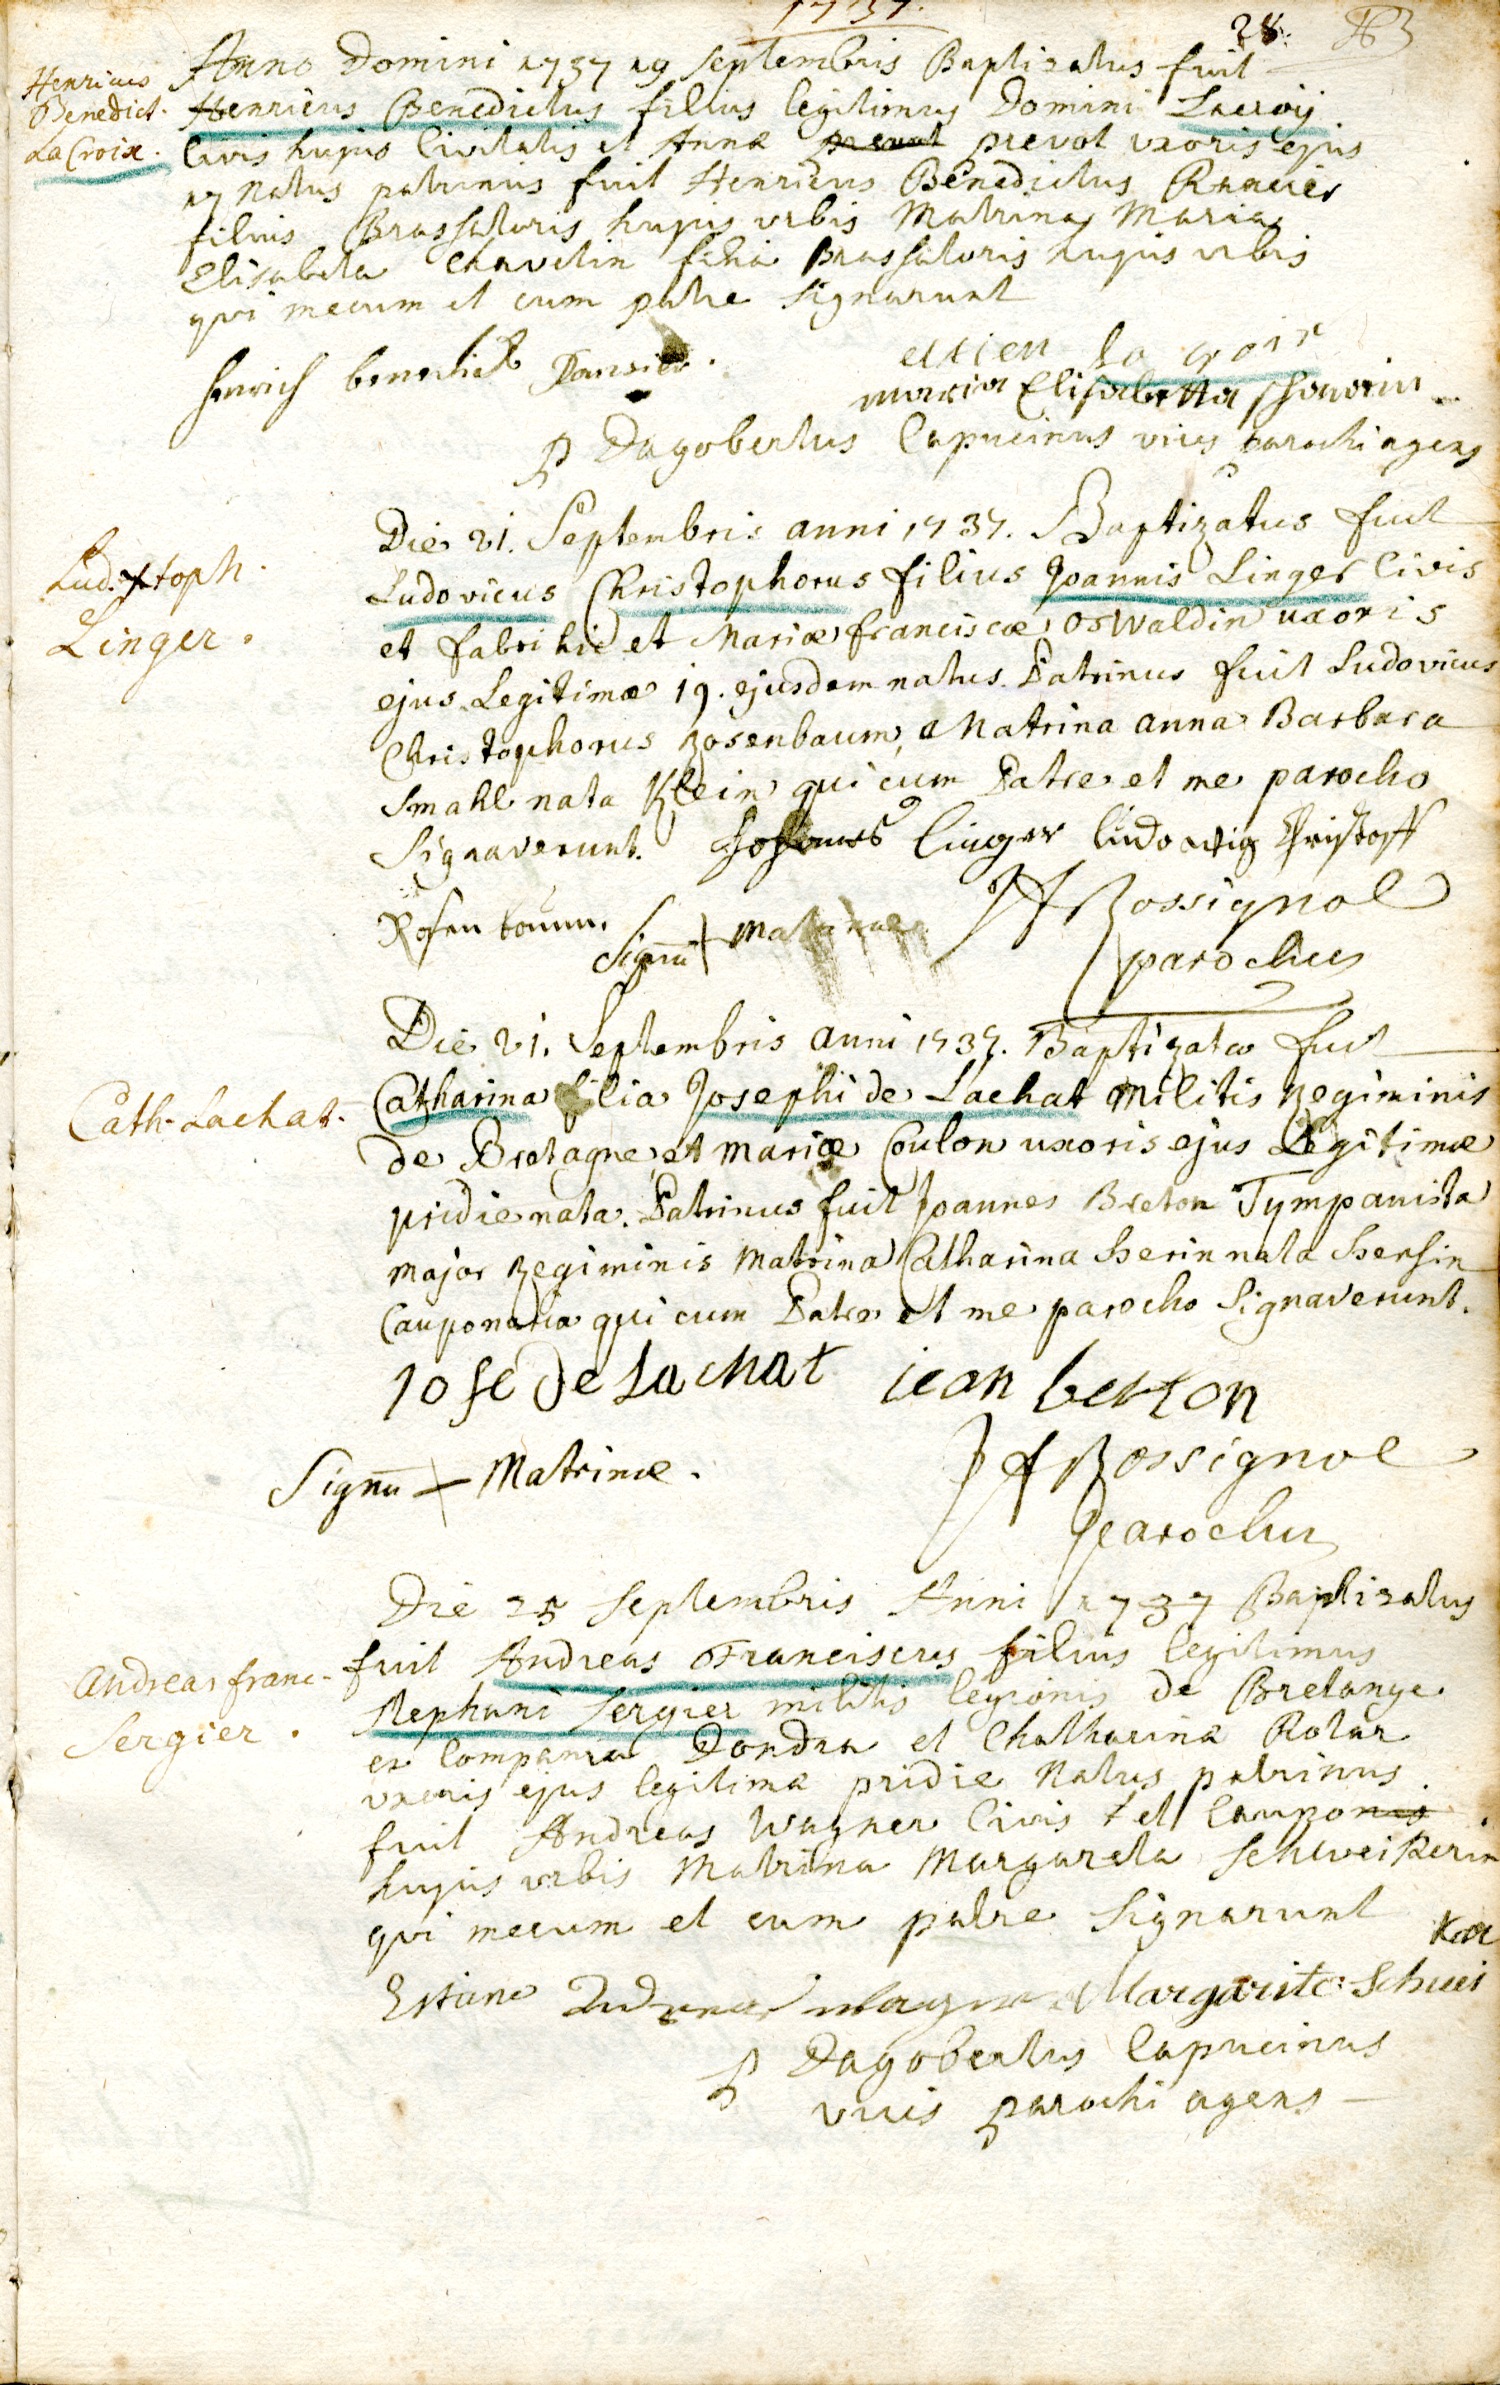 1737.
28.
Anno Domini 1737 19 Septembris Baptizatus fuit
Henricus
Benedict.
La Croix.
Henricus Benedictus filius legitimus Domini Lacroij
Civis hujus Civitatis et Annæ prevot uxoris ejus
17 Natus patrinus fuit Henricus Benedictus
filius Brassatoris hujus urbis Matrina Maria
Elisabeta Chavelin filia Brassatoris hujus urbis
qui mecum et cum patre signarunt
Henrich benedickt
etien la croix
maria Elisabetta
P Dagobertus Capucinus vices parochi agens
Lud. Xtoph.
Linger.
Die 21. Septembris anni 1737. Baptizatus fuit
Ludovicus Christophorus filius Joannis Linger Civis
et fabri hic et Mariæ franciscæ Oswaldin uxoris
ejus Legitimæ 19. ejusdem natus. Patrinus fuit Ludovicus
Christophorus Rosenbaum, Matrina anna Barbara
Smahl nata Klein qui cum Patre et me parocho
Signaverunt. Johannes linger ludowig Christoff
Rosenbaum.
Signū + Matrinæ
JF Rossignol
parochus
Cath. Lachat.
Die 21. Septembris anni 1737. Baptizata fuit
Catharina filia Josephi de Lachat Militis Regiminis
de Bretagne et Mariæ Coulon uxoris ejus Legitimæ
pridie nata. Patrinus fuit Joannes Breton Tympanista
Major Regiminis Matrina Catharina Herin nata Hersin
Cauponaria qui cum Patre et me parocho Signaverunt.
Jose De Lachat jean berton
Signū + Matrinæ.
JF Rossignol
Parochus
Andreas franc.
Sergier.
Die 25 Septembris Anni 1737 Baptizatus
fuit Andreas Franciscus filius legitimus
Stephani Sergier militis legionis de Bretange
ex Compania Dondra et Chatharinæ Rolar
uxoris ejus legitimæ pridie Natus patrinus
fuit Andreas Wagner Civis et Caupo
hujus urbis Matrina Margareta Schweikerin
qui mecum et cum patre signarunt
Estiane Andreas Wagner Margarite Schwei
Ker
P Dagobertus Capucinus
vices parochi agens